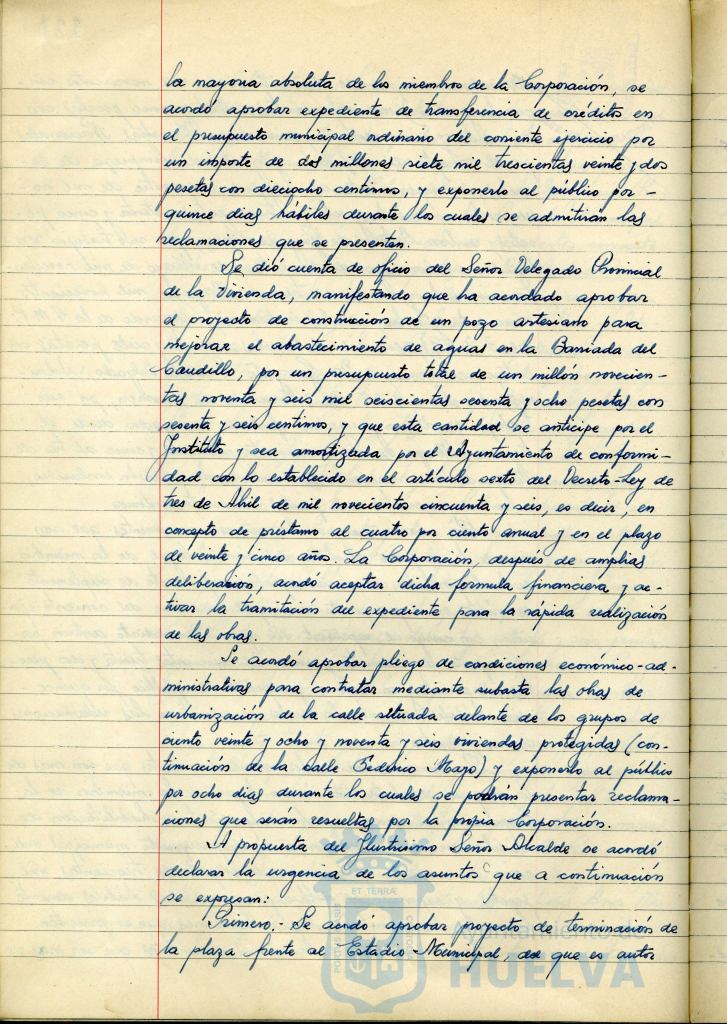 la mayoria absoluta de los miembros de la Corporación, se
acordó aprobar expediente de transferencia de créditos en
el presupuesto municipal ordinario del corriente ejercicio por
un importe de dos millones siete mil trescientas veinte y dos
pesetas con dieciocho centimos, y exponerlo al público por
quince dias hábiles durante los cuales se admitirán las
reclamaciones que se presenten.
Se dió cuenta de oficio del Señor Delegado Provincial
de la Vivienda, manifestando que ha acordado aprobar
el proyecto de construcción de un pozo artesiano para
mejorar el abastecimiento de aguas en la Barriada del
Caudillo, por un presupuesto total de un millón novecien-
tas noventa y seis mil seiscientas sesenta y ocho pesetas con
sesenta y seis centimos, y que esta cantidad se anticipe por el
Instituto y sea amortizada por el Ayuntamiento de conformi-
dad con lo establecido en el artículo sexto del Decreto-Ley de
tres de Abril de mil novecientos cincuenta y seis, es decir, en
concepto de préstamo al cuatro por ciento anual y en el plazo
de veinte y cinco años. La Corporación, después de amplias
deliberación, acordó aceptar dicha formula financiera y ac-
tivar la tramitación del expediente para la rápida realización
de las obras.
Se acordó aprobar pliego de condiciones económico-ad-
ministrativas para contratar mediante subasta las obras de
urbanización de la calle situada delante de los grupos de
ciento veinte y ocho y noventa y seis viviendas protegidas (con-
tinuación de la calle Federico Mayo) y exponerlo al público
por ocho dias durante los cuales se podrán presentar reclama-
ciones que serán resueltas por la propia Corporación.
A propuesta del Ilustrisimo Señor Alcalde se acordó
declarar la urgencia de los asuntos que a continuación
se expresan:
Primero.- Se acordó aprobar proyecto de terminación de
la plaza frente al Estadio Municipal, de que es autor
Ayuntamiento de
HUELVA